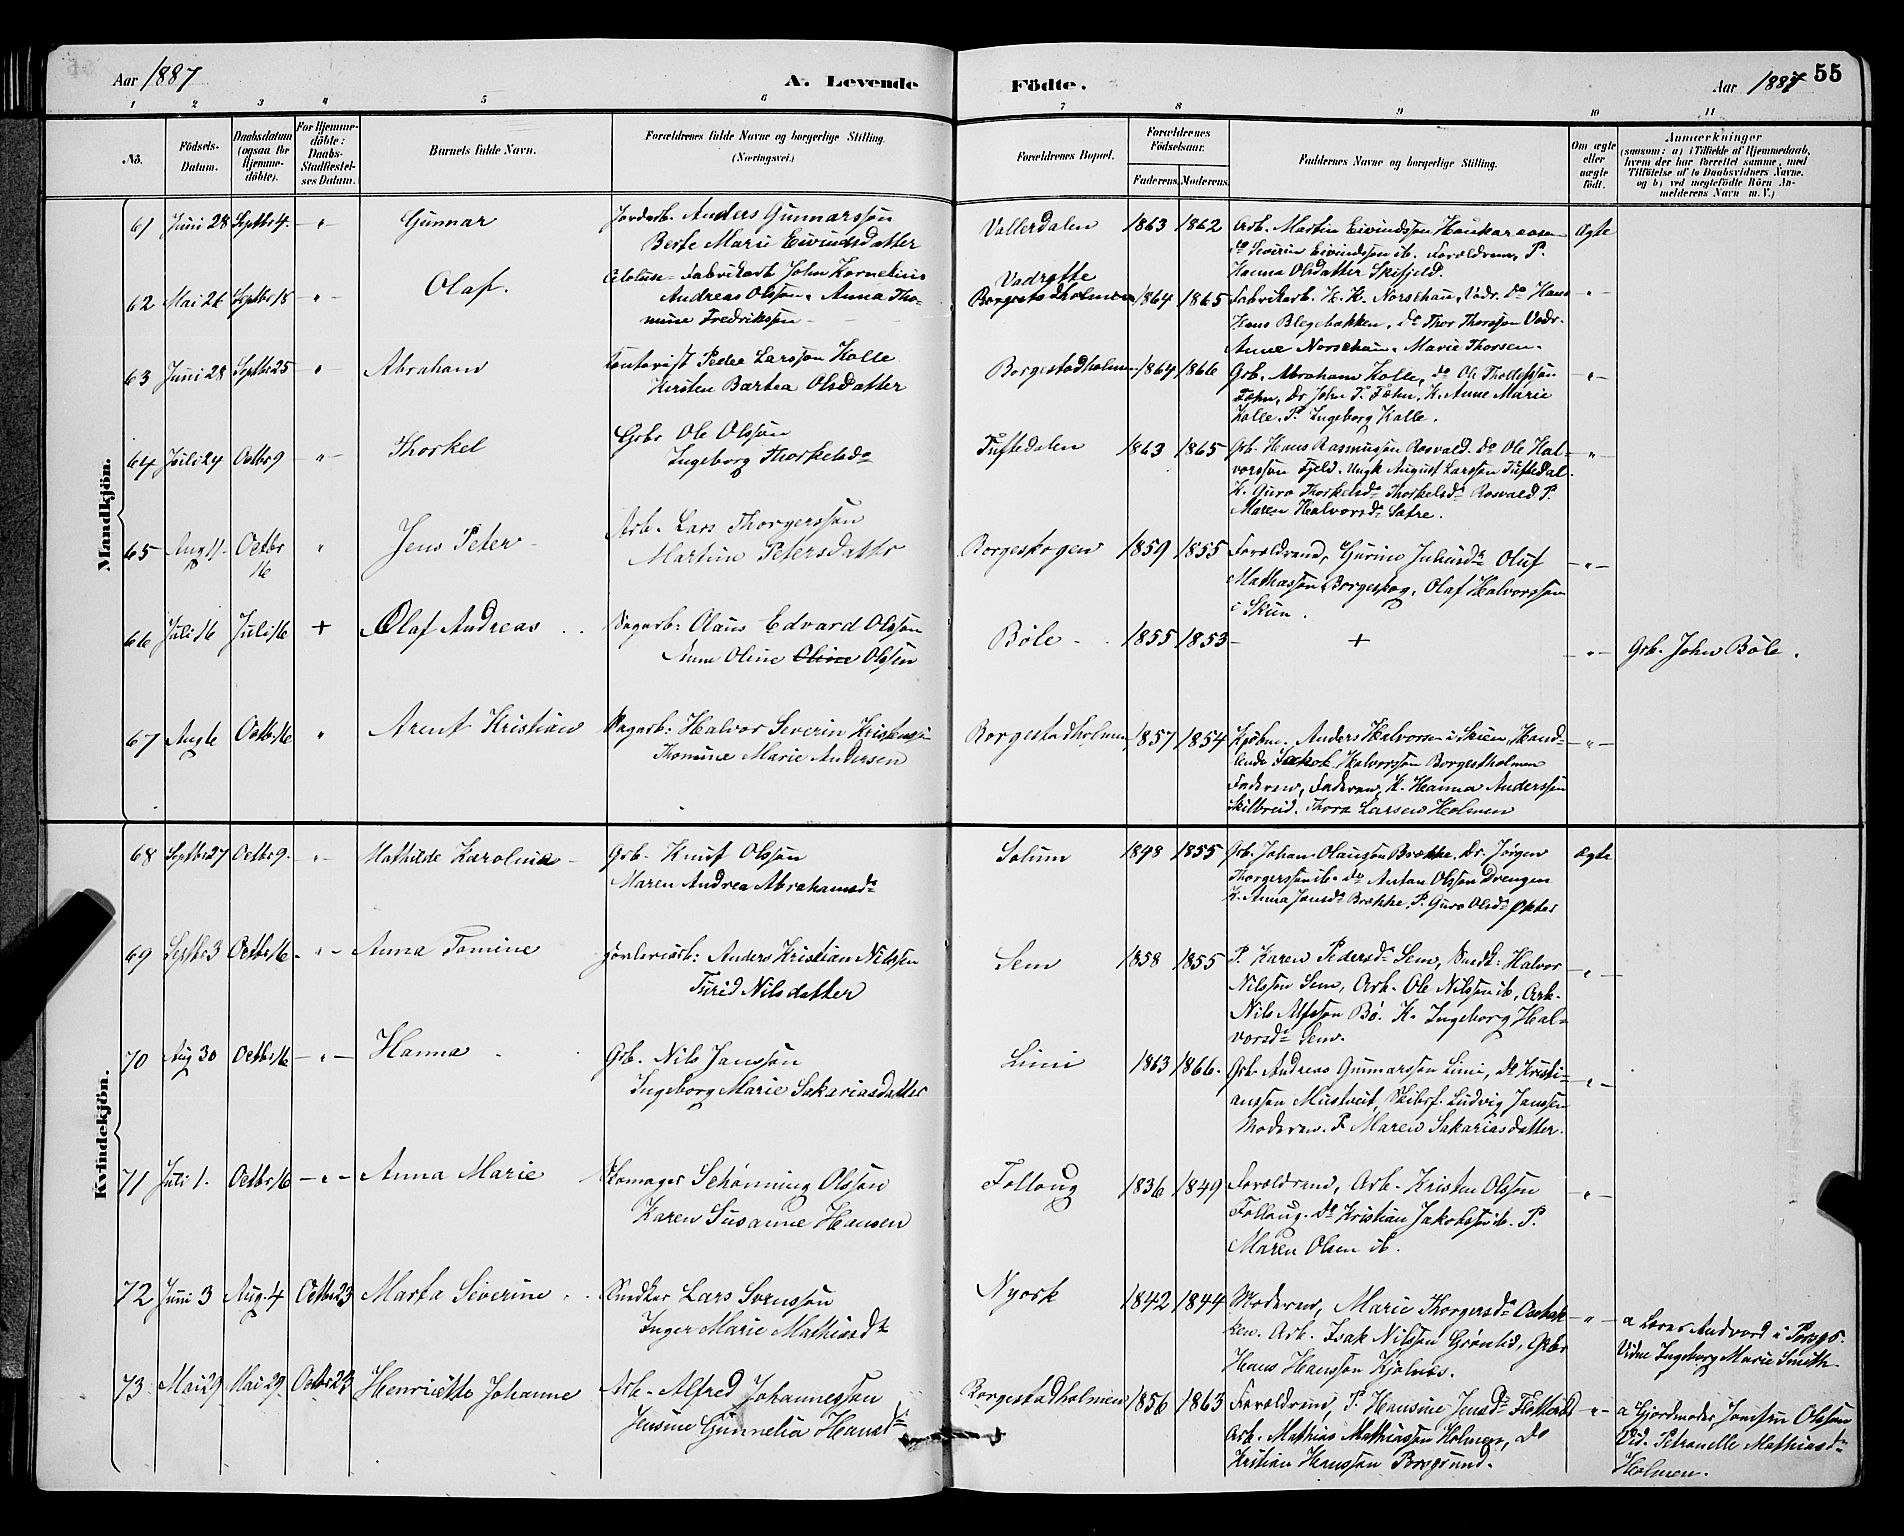 Aar 1887
A. Levende
Födte.
Aar 1887
55
1 2 3 4 5 6 7 8 9 10 11
No.
Födsels-
Datum.
Daabsdatum
(ogsaa for
Hjemme-
döbte).
For Hjemme-
döbte:
Daabs-
Stadfæstel-
ses Datum.
Barnets fulde Navn.
Forældrenes fulde Navne og borgerlige Stilling.
(Næringsvei.)
Forældrenes Bopæl.
Forældrenes
Födselsaar.
Faderens.
Moderens.
Faddernes Navne og borgerlige Stilling.
Om ægte
eller
uægte
födt.
Anmærkninger
(saasom: a) i Tilfælde af Hjemmedaab,
hvem der har forrettet samme, med
Tilföielse af to Daabsvidners Navne.
og b) ved uægtefödte Börn An-
melderens Navn m. V.)
Mandkjön.
61 Juni 28 Septbr 4. - " - Gunnar
Jordarb. Anders Gunnarssøn
Berte Marie Eivindsdatter
Vallerdalen 1863 1862
Arb. Martin Eivindssøn Haukaraasen
do Severin Eivindssøn ib. Forældrene, P.
Hanna Olsdatter Skifjeld.
Ægte
62 Mai 26 Septbr 18 - " - Olaf.
Celulose-Fabrikarb John Kornelius
Andreas Olssøn, Anna Tho-
mine Fredrikssen
Vadrette
Borgestadholmen 1864 1865
Fabrikarb. H. H. Norschau, Vadr. do Hans
Hans Blegebakken, do Thor Thorssøn Vadr.
Anne Norschau, Marie Thorsen.
- " -
63 Juni 28 Septbr 25 " Abraham
Kontorist Peder Larssøn Kolle
Kirsten Bartea Olsdatter
Borgestadholmen 1864 1866
Grb. Abraham Kolle, do Ole Thollefssøn
Føhn, do John P. Føhn, K. Anne Marie
Kolle. P. Ingeborg Kolle.
- " -
64 Juli 24 Octbr 9 - " - Thorkel
Grbr Ole Olssøn
Ingeborg Thorkelsdr
Tuftedalen 1863 1865
Grb. Hans Rasmussøn Rosvald. do Ole Hal-
vorssøn Fjeld. Ungk August Larssøn Tuftedal.
K. Guro Thorkelsdr Thorkelsdr Rosvald. P.
Maren Halvorsdr Sætre.
"
65 Aug 11 Octbr
16
" Jens Peter
Arb. Lars Thorgerssøn
Martine Petersdattr
Borgeskogen 1859 1855
Forældrene, Gurine Juliusdr Oluf
Mathiassøn Borgeskog, Olaf Halvorssøn
i Skien.
- " -
66 Juli 16 Juli 16 + Olaf Andreas
Sagarb: Olaus Edvard Olssøn
Anne Oline Oline Olssen
Bøle 1855 1853
+
- " -
Grb. John Bøle.
67 Aug 6 Octbr 16 " Arent Kristian
Sagarb: Halvor Severin Kristenssøn
Thomine Marie Andersen
Borgestadholmen 1857 1854
Kjøbm. Anders Halvorsen i Skien, Hand-
lende Jakob Halvorssøn Borgestholmen
Faderen, Faderen, K. Hanna Anderssen
Skilbred. Thora Larsen Holmen
- " -
Kvindekjön.
68 Septbr 27 Octbr 9. - " - Mathilde Karoline
Grb. Knut Olssøn
Maren Andrea Abrahamsdr
Solum 1848 1855
Grb. Johan Olaussøn Brække. Do. Jørgen
Thorgerssøn ib. do Anton Olssøn Drengen
K. Anna Jansdr Brække, P. Guro Olsdr
Ægte
69 Septbr 3 Octbr 16 - " - Anna Tomine
Anders Kristian Nilssen
Turid Nilsdatter
Sem 1858 1855
P. Karen Pedersdr Sem, Smedk: Halvor
Nilssøn Sem, Arb. Ole Nilssøn ib, Arb.
Nils Alfssøn Bø. K. Ingeborg Hal-
vorsdr Sem.
- " -
70 Aug 30 Octbr 16 - " - Hanna
Grb. Nils Janssøn
Ingeborg Marie Sakariasdatter
Limi 1863 1866.
Grb. Andreas Gunnarssøn Limi, do Kristi-
anssøn Mustveit, Skibsf. Ludvig Janssøn
Moderen. P. Maren Sakariasdatter.
- " -
71 Juli 1. Octbr 16 - " - Anna Marie
Skomager Schønning Olssøn
Karen Susanne Hansen
Folloug 1836 1849
Forældrene, Arb. Kristen Olssøn
Folloug. do Kristian Jakobssøn ib. P.
Maren Olsen ib.
- " -
72 Juni 3 Aug. 4 Octbr 23 Marta Siverine
Snedker Lars Svenssøn
Inger Marie Mathiasdr
Nyork 1842 1844
Moderen, Marie Thorgersdr Oxebak
ken. Arb. Isak Nilssøn Grønlid, Grbr
Hans Hanssøn Kjølnæs.
- " -
a Lærer Andvord i Porsgr.
Vidne Ingeborg Marie Smith
73 Mai 29 Mai 29. Octbr 23 Henriette Johanne
Arb. Alfred Johannessøn
Jensine Gunnelia Hansdr
Borgestadholmen 1856 1863
Forældrene, P. Hansine Jensdr
Arb. Mathias Mathiassøn Holmen, do
Kristian Hanssøn Porsgrund.
- " -
a Gjordmoder Olssøn
Vid. Petronelle Mathiasdr
Holmen.